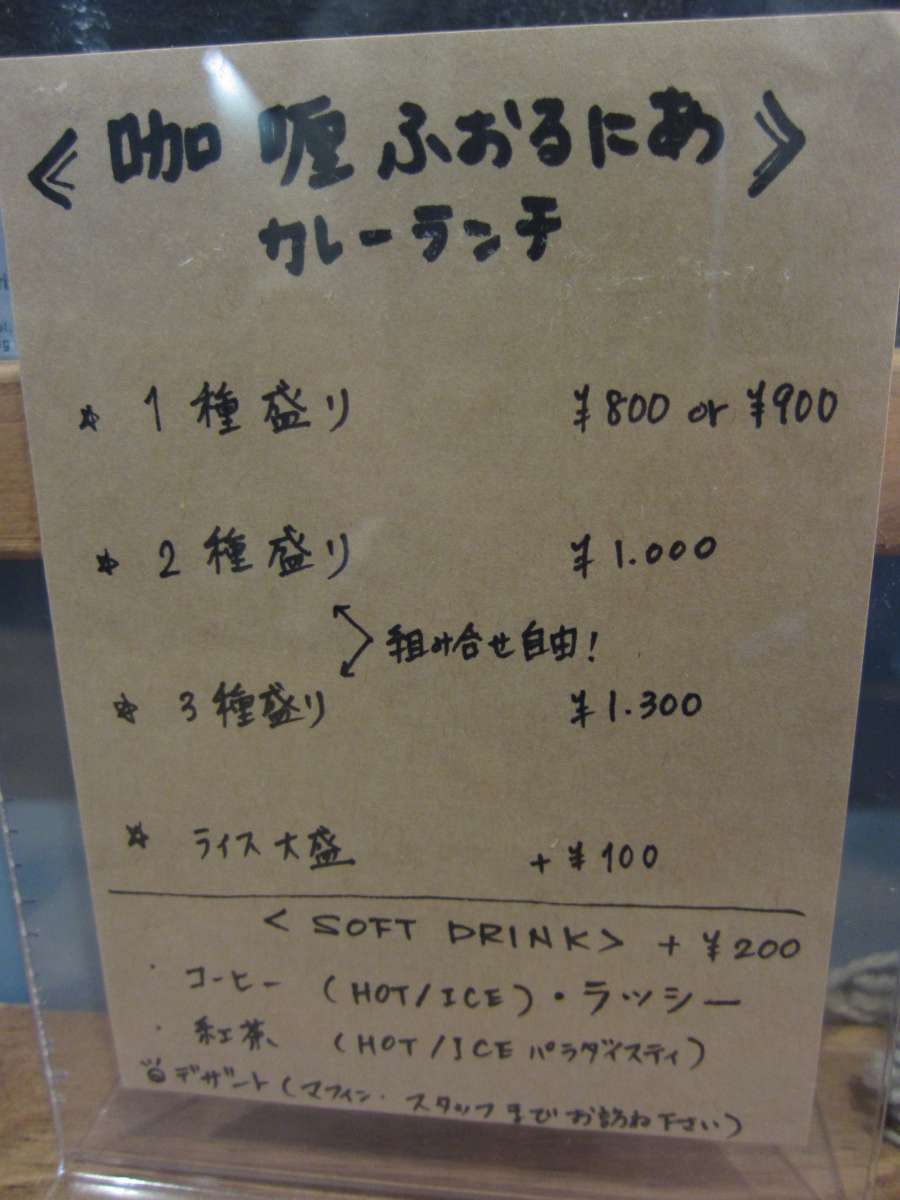 ≪咖喱ふぉるにあ≫
カレーランチ
☆ 1種盛り ¥800 or ¥900
☆ 2種盛り ¥1.000
組み合せ自由!
☆ 3種盛り ¥1.300
☆ ライス大盛 +¥100
< SOFT DRINK> +¥200
・コーヒー (HOT/ICE)・ラッシー
・紅茶 (HOT/ICE パラダイスティ)
デザート(マフィン・スタッフまでお訪ね下さい)